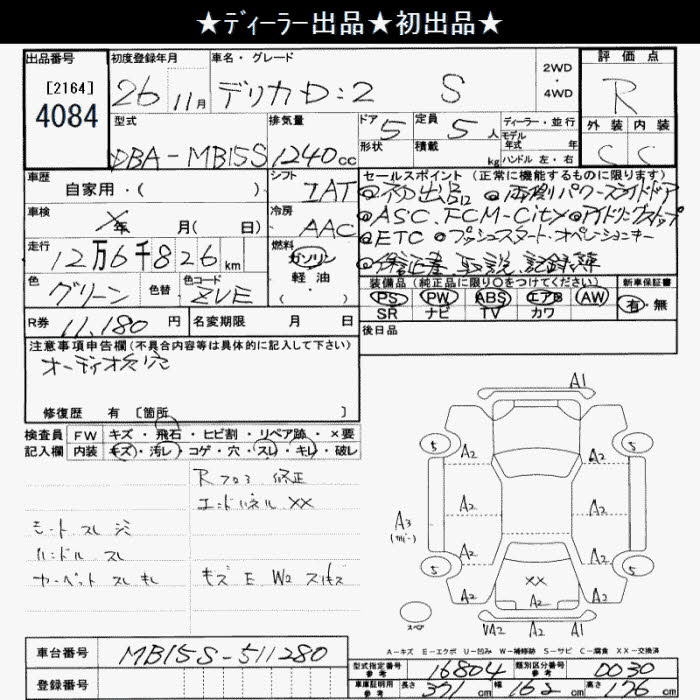 ★ディーラー出品★初出品★
出品番号 初度登録年月 車名・グレード 評価点
[2164]
4084
26 11月 デリカD:2 S
2WD
・
4WD
R
型式 排気量 ドア 定員 ディーラー・並行 外装 内装
DBA-MB15S 1240cc 5 5人
モデル年式 年
形状 積載 kg ハンドル 左・右
C C
車歴 シフト セールスポイント (正常に機能するものに限ります)
自家用・( ) IAT ◎初出品 ◎両側パワースライドドア
車検 冷房 ◎ASC.FCM-City ◎アイドリングストップ
年 月(日) AAC
走行 燃料 ◎ETC ◎プッシュスタート・オペレーションキー
12万6千826km ガソリン ◎保証書 取説 記録簿
軽油
( )
色 色替 色コード 装備品 (純正品に限り○をつけてください) 新車保証書
グリーン ZVE PS PW ABS エアB AW 有・無
SR ナビ TV カワ
R券 11,180円 名変期限 月 日 後日品
注意事項申告欄 (不具合内容等は具体的に記入して下さい)
オーディオ欠穴
修復歴 有 [箇所 ]
検査員 FW キズ・飛石・ヒビ割・リペア跡・×要
記入欄 内装 キズ・汚レ・コゲ・穴・スレ・キレ・破レ
Rフロア 修正
エンドパネル XX
シート スレ
ハンドル スレ
カーペット スレ キレ
キズ E W2
A1
5 A2 A2 5
A2 A2
A3 A2 A2
5 XX 5
A2 A2 A2
スペア VA2 A2 A1
A-キズ E-エクボ U-凹み W-補修跡 S-サビ C-腐食 XX-交換済
車台番号 MB15S-511280
登録番号
型式指定番号 参考 16804 類別区分番号 参考 0030
車庫証明用 参考 長さ 371cm 幅 162cm 高さ 176cm